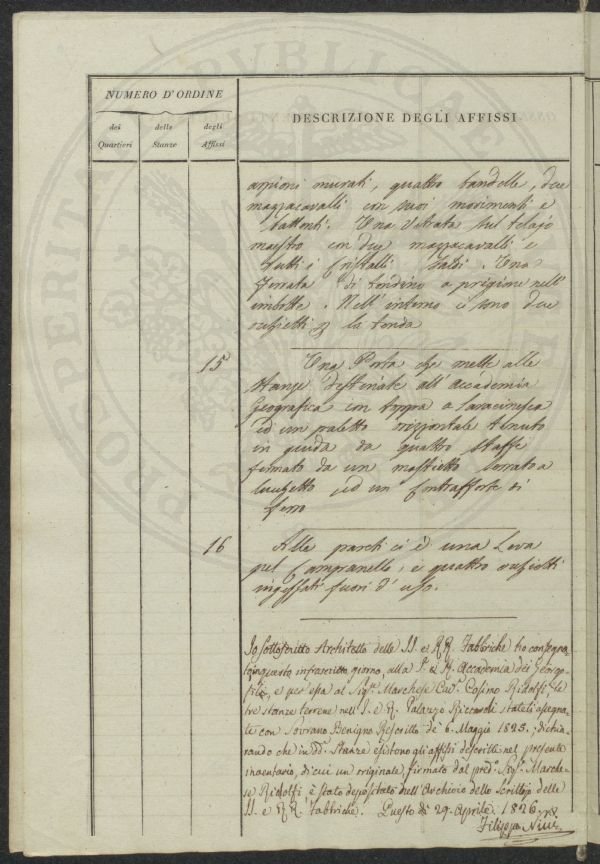 NUMERO D'ORDINE
DESCRIZIONE DEGLI AFFISSI
dei Quartieri
delle Stanze
degli Affissi
PROSPERITÀ PUBLICAE
arpioni murati, quattro bandelle, due
mazzacavalli con suoi movimenti e
battenti. Una Vetrata sul telajo
maestro con due mazzacavalli e
tutti i Cristalli saldi. Una
ferrata di tondino a prigione nell'
imbotte. Nell'interno ci sono due
la tenda
15 Una Porta che mette alle
Stanze destinate all'Accademia
Geografica con toppa a Saracinesca
ed un paletto orizzontale tenuto
in guida da quattro staffe
fermato da un mastietto serrato a
lucchetto ed un Contrafforte di
ferro
16 Alle pareti ci è una Leva
pel Campanello, e quattro
ingessati fuori d'uso.
Io Sottoscritto Architetto delle II. e RR. Fabbriche ho consegna-
to in questo infrascritto giorno, alla I. e R. Accademia dei Georgo-
fili, e per essa al Sig.r Marchese Cav.r Cosimo Ridolfi, le
tre stanze terrene nell'I. e R. Palazzo Riccardi stateli assegna-
te con Sovrano Benigno Rescritto de' 6. Maggio 1825.; dichia-
rando che in dd.e Stanze esistono gli affissi descritti nel presente
inventario, di cui un originale, firmato dal pred.o Sig.r Marche-
se Ridolfi, è stato depositato nell'Archivio dello Scrittojo delle
II. e RR. Fabbriche. Questo dì 29. Aprile 1826.
Filippo Nini